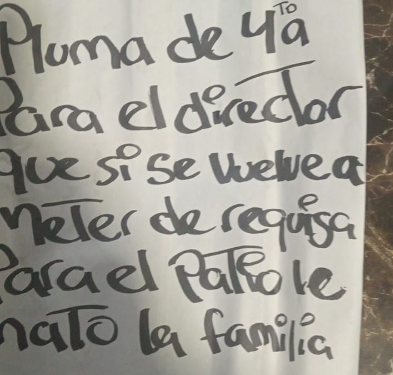 Pluma de 4ª To
Para el director
que si se vuelve a
meter de requisa
Para el Patio le
mato la familia